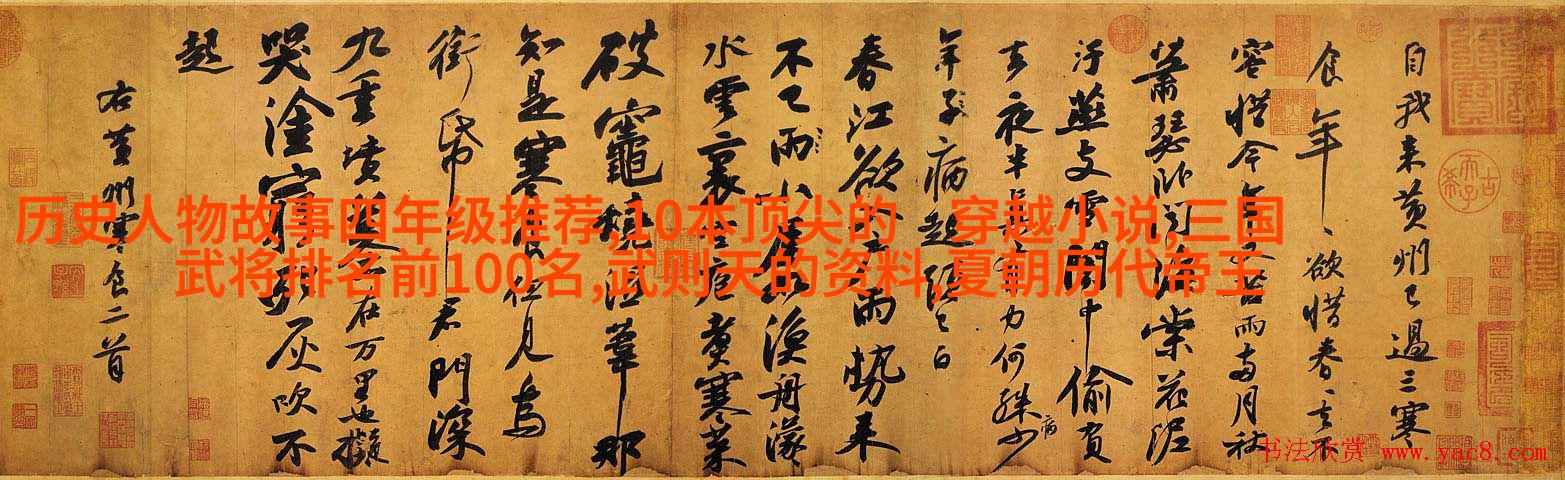 历史人物故事四年级推荐,10本顶尖的 穿越小说,三国
武将排名前100名,武则天的资料,夏朝历代帝王
自我来黄州已過三寒
食年々欲惜春々去不
容惜今年又苦雨兩月秋
蕭瑟卧聞海棠花泥
汙燕支雪闇中偷負
去夜半真有力何殊少
年子病起頭已白
春江欲入户雨勢来
不已雨小屋如漁舟濛
水雲裏空庖煮寒菜
破竈燒濕葦那
知是寒食但見烏
銜帋君門深
九重墳墓在万里也擬
哭塗窮死灰吹不
起
右黄州寒食二首
书法欣赏 www.yac8.com